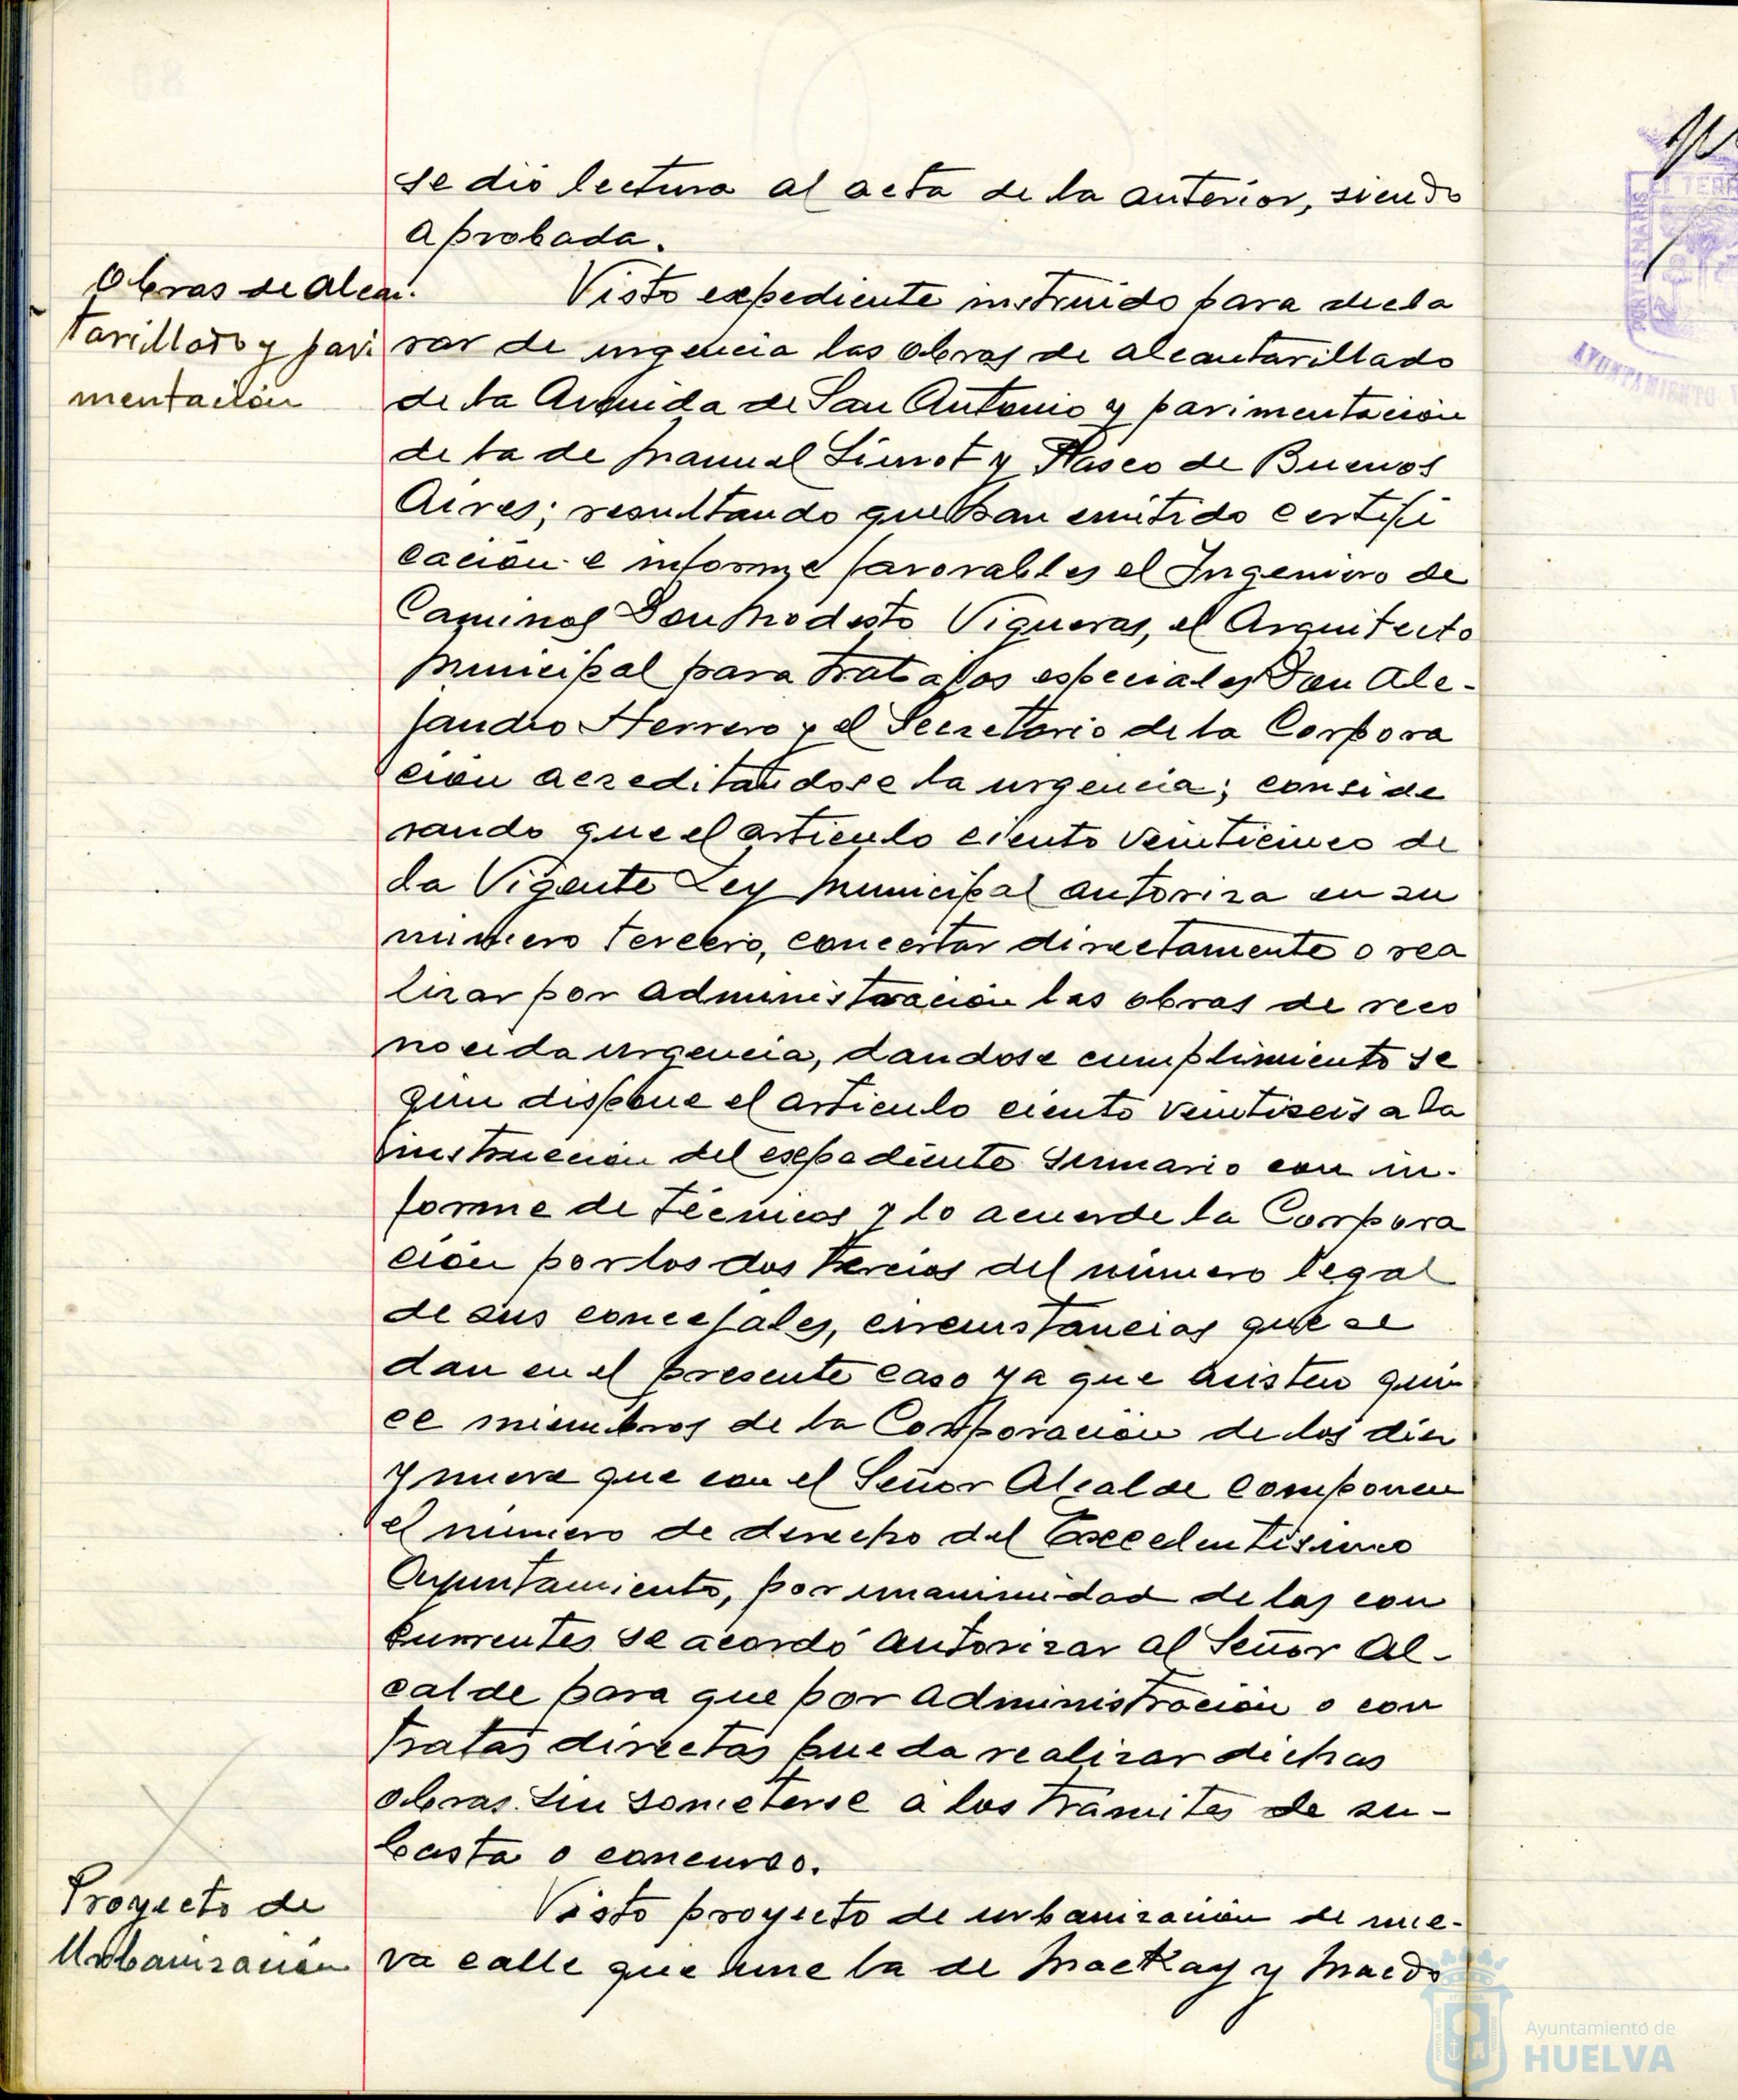 se dió lectura al acta de la anterior, siendo
aprobada.
Obras de alcan-
tarillado y pavi
mentación
Visto expediente instruido para decla
rar de urgencia las obras de alcantarillado
de la Avenida de San Antonio y pavimentación
de la de Manuel Siurot y Paseo de Buenos
Aires; resultando que han emitido certifi
cación e informe favorables el Ingeniero de
Caminos Don Modesto Vigueras, el Arquitecto
Municipal para trabajos especiales Don Ale-
jandro Herrero y el Secretario de la Corpora
ción acreditandose la urgencia; conside
rando que el articulo ciento veinticinco de
la Vigente Ley Municipal autoriza en su
número tercero, concertar directamente o rea
lizar por administración las obras de reco
nocida urgencia, dandose cumplimiento se
gún dispone el articulo ciento veintiseis a la
instrucción del expediente sumario con in-
forme de técnicos y lo acuerde la Corpora
ción por los dos tercios del número legal
de sus concejales, circunstancias que se
dan en el presente caso ya que asisten quin
ce miembros de la Corporación de los diez
y nueve que con el Señor Alcalde componen
el número de derecho del Excelentisimo
Ayuntamiento, por unanimidad de los con
currentes se acordó autorizar al Señor Al-
calde para que por administración o con
tratas directas pueda realizar dichas
obras sin someterse a los trámites de su-
basta o concurso.
Proyecto de
Urbanización
Visto proyecto de urbanización de nue-
va calle que une la de Mackay y Macdo
EL TERR
POR TUS MARIS
AYUNTAMIENTO
Ayuntamiento de
HUELVA